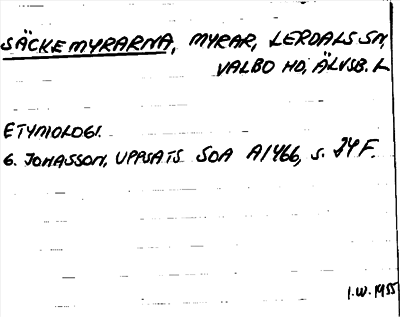 SÄCKEMYRARNA, MYRAR, LERDALS SN,
VALBO HD, ÄLVSB. L
ETYMOLOGI.
G. JOHASSON, UPPSATS SOA A1466, s. 24 F.
I.W. 1955